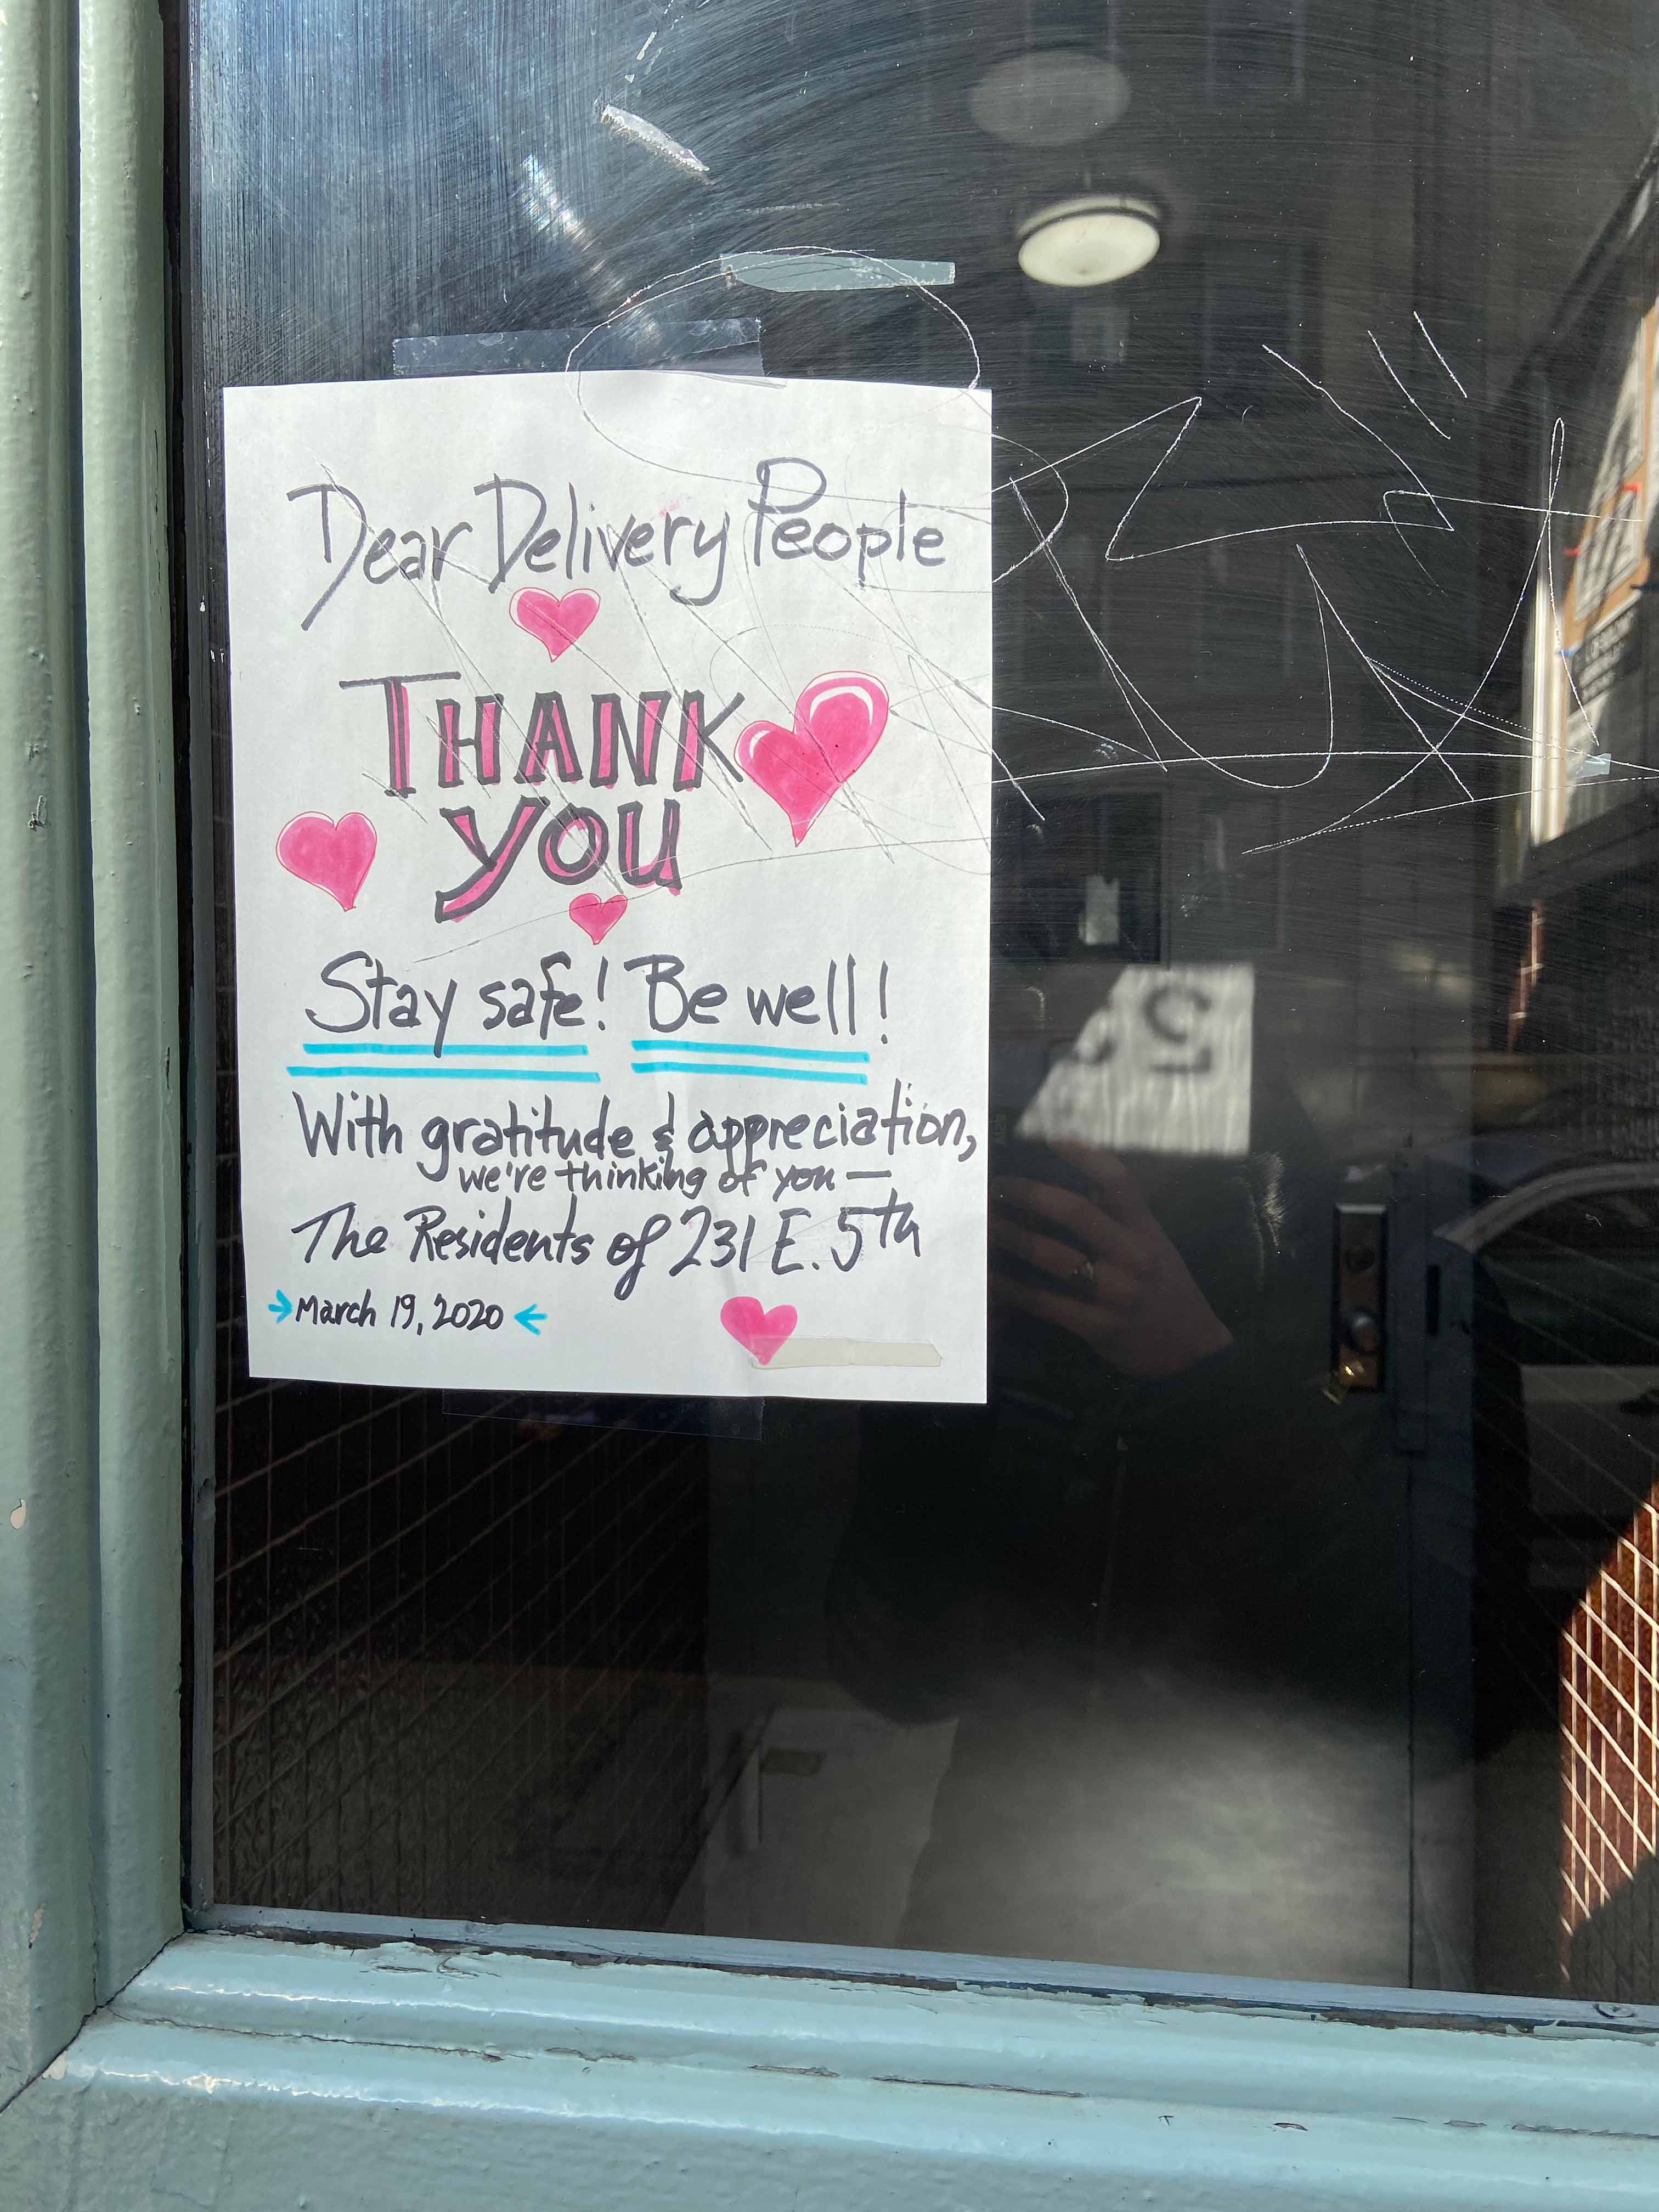 Dear Delivery People
THANK
YOU
Stay safe! Be well!
With gratitude & appreciation,
we're thinking of you —
The Residents of 231 E. 5th
→ March 19, 2020 ←